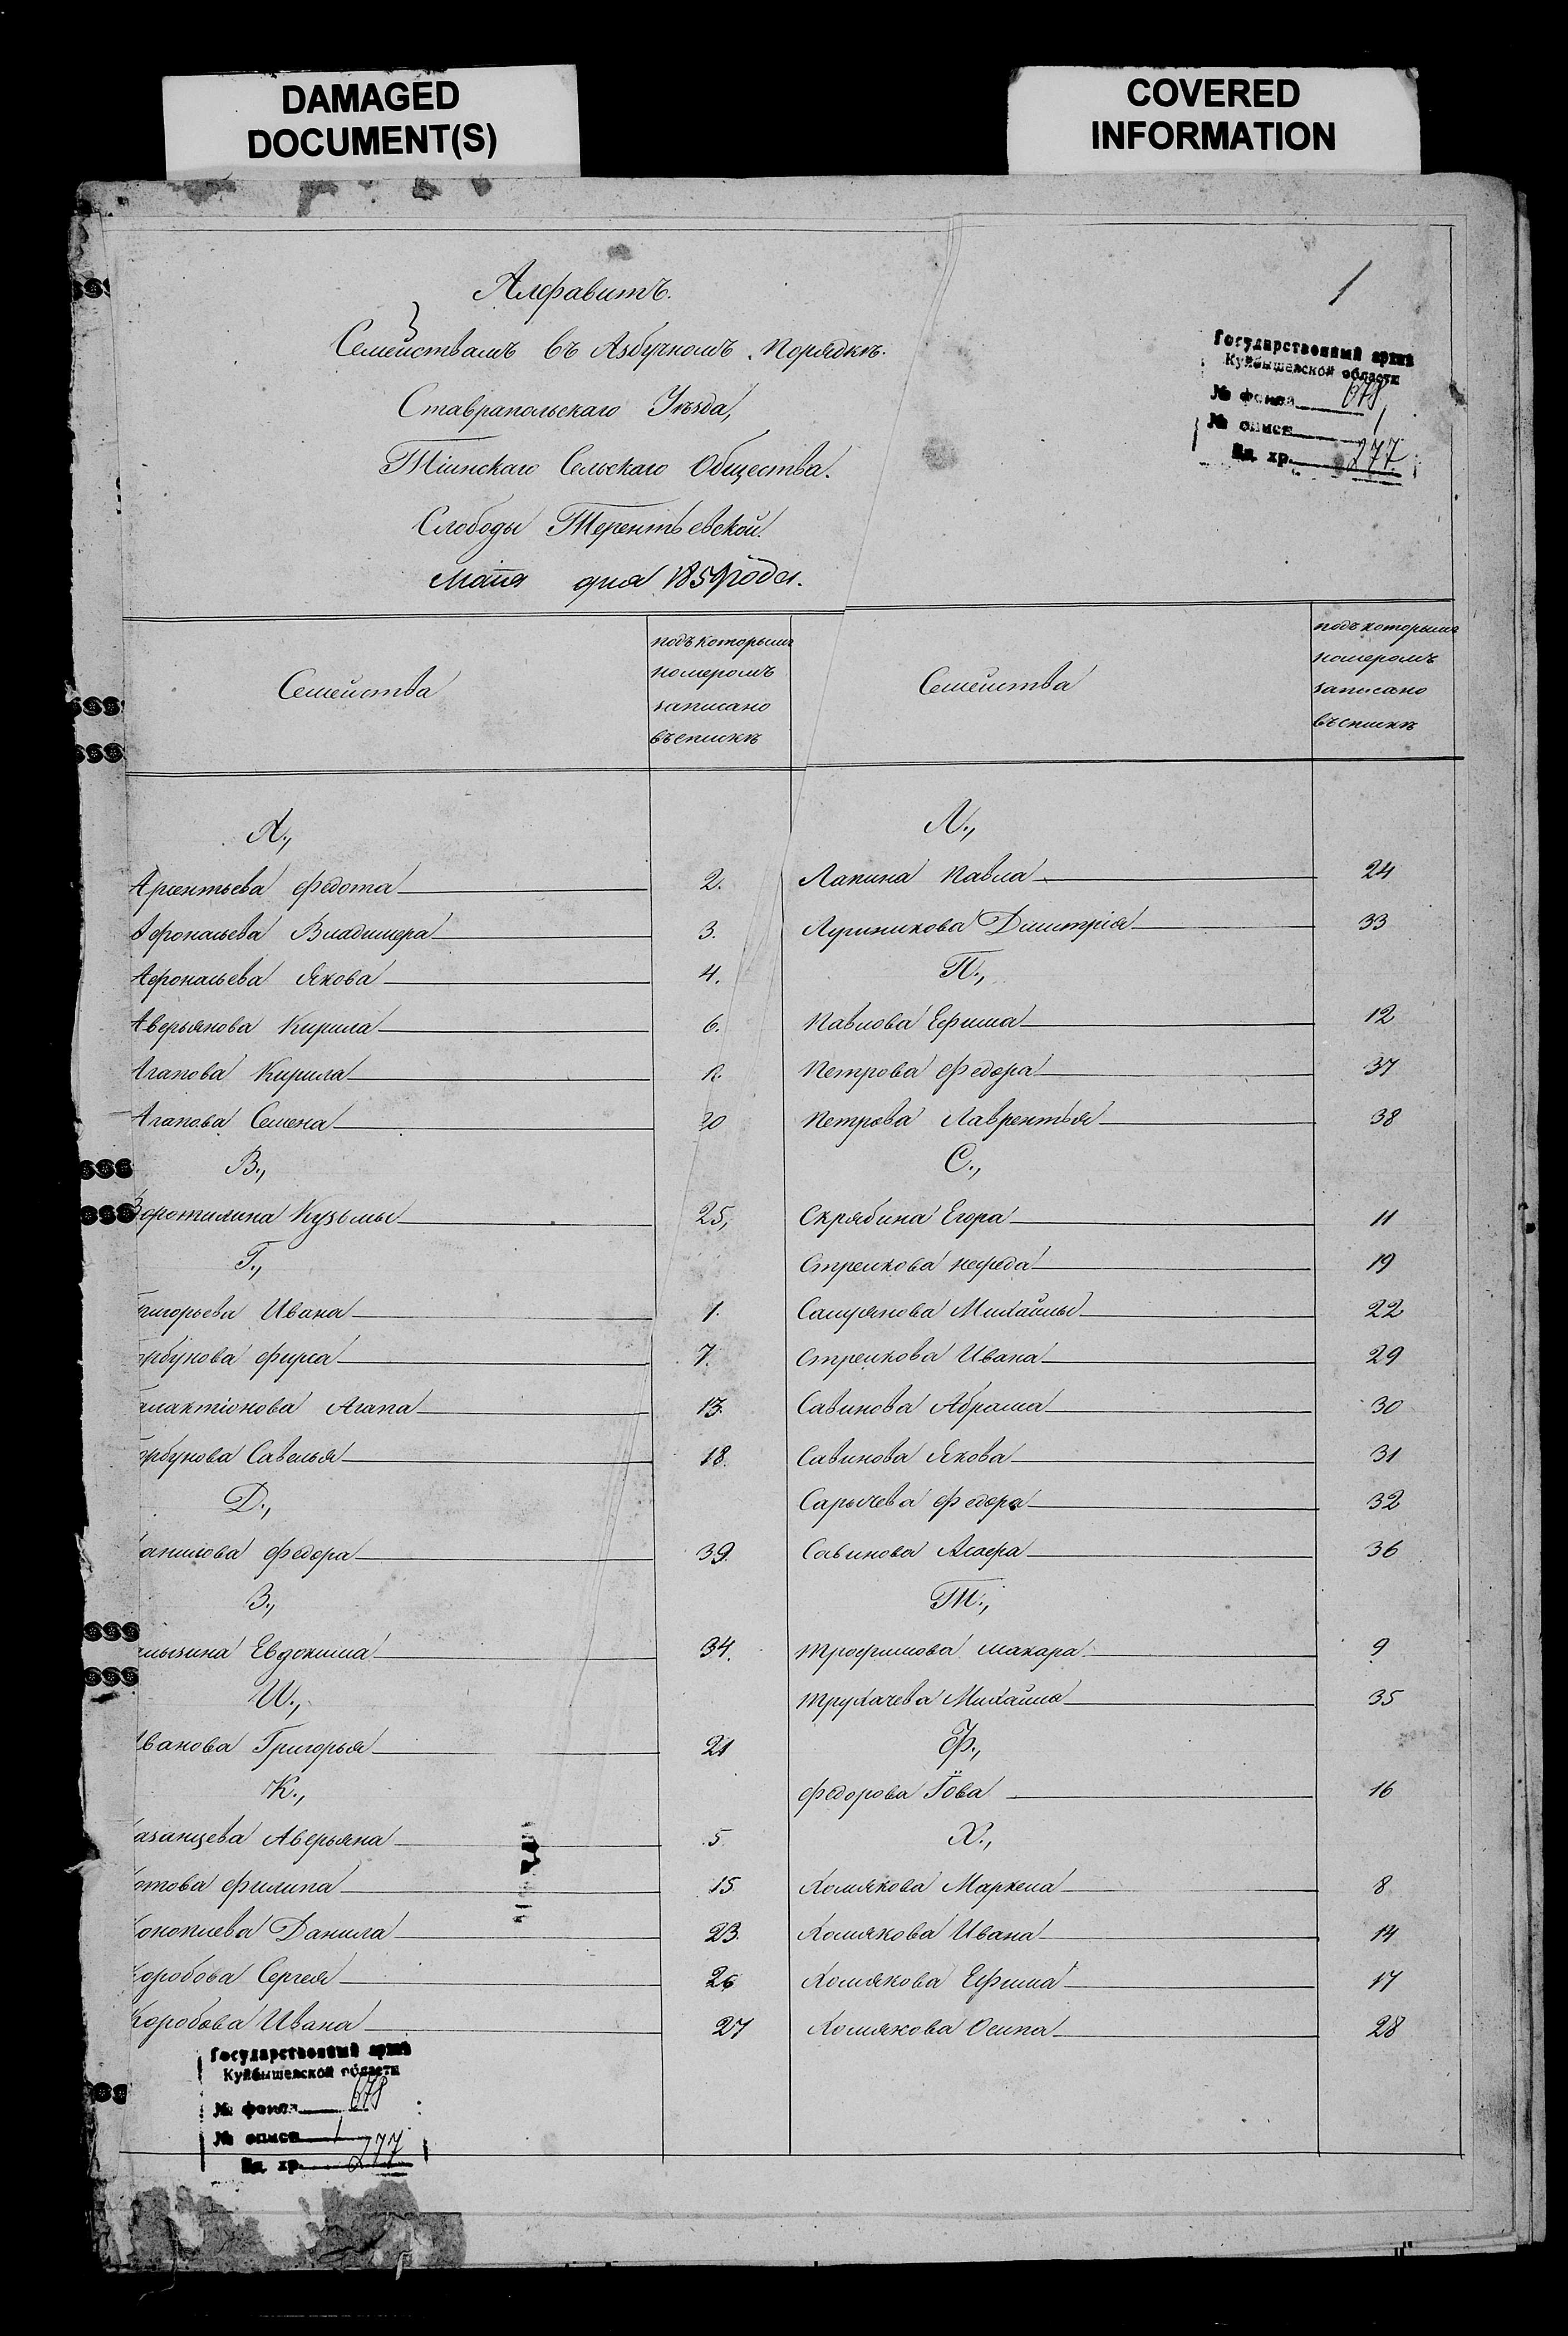 DAMAGED
DOCUMENT(S)
COVERED
INFORMATION
1
Алфавитъ.
Семействамъ въ Азбучномъ Порядкѣ.
Ставрапольскаго Уѣзда,
Тіинскаго Сельскаго Общества.
Слободы Терентьевской.
Маия дня 1859 года.
Государственный архив
Куйбышевской области
№ фонда 678
№ описи 1
Ед. хр. 277
Семейства
подъ которымъ
номеромъ
записано
въ спискѣ
Семейства
подъ которымъ
номеромъ
записано
въ спискѣ
А.,
Арсентьева Федота 2.
Афонасьева Владимера 3.
Афонасьева Якова 4.
Аверьянова Кирила 6.
Агапова Кирила
Агапова Семена 20
В.,
Воротилина Кузьмы 25,
Г.,
Григорьева Ивана 1.
орбунова Фирса 7.
алактіонова Агапа 13.
орбунова Савелья 18.
Д.,
анилова Федора 39.
З.,
Евдокима 34.
И.,
Иванова Григорья 21
К.,
азанцева Аверьяна 5
отова Филипа 15
оноплева Данила 23.
Коробова Сергея 26
Коробова Ивана 27
Государственный архив
Куйбышевской области
№ фонда 678
№ описи 1
Ед. хр. 277
Л.,
Лапина Павла 24
Лучникова Дмитрія 33
П.,
Павлова Ефима 12
Петрова Федора 37
Петрова Лаврентья 38
С.,
Скрябина Егора 11
Стрелкова Нефеда 19
Михайлы 22
Стрелкова Ивана 29
Савинова Абрама 30
Савинова Якова 31
Сарычева Федора 32
Савинова Асафа 36
Т.,
Трофимова Макара 9
Трухачева Михайла 35
Ф.,
Федорова Іова 16
Х.,
Хомякова Маркела 8
Хомякова Ивана 14
Хомякова Ефима 17
Хомякова Осипа 28